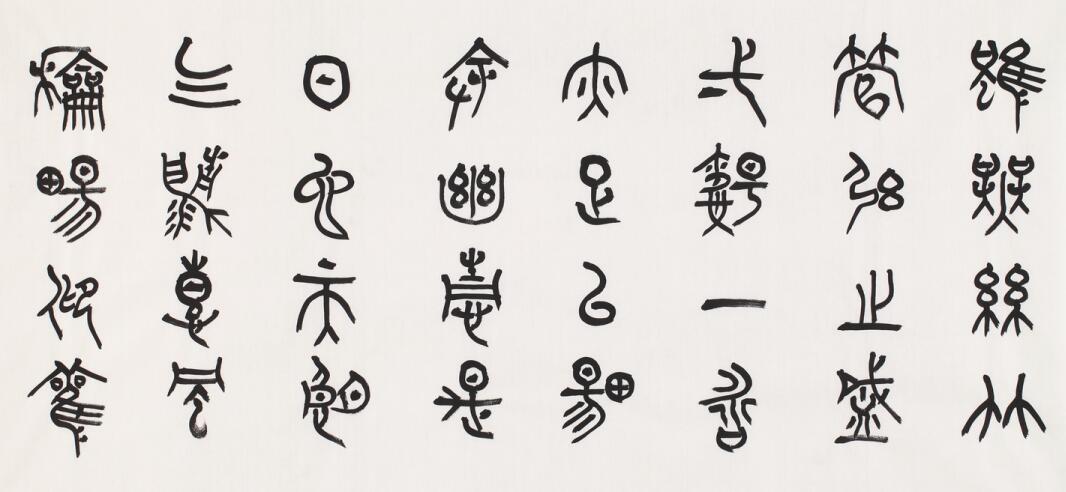 雖無絲竹
管弦之盛
一觴一詠
亦足以暢
敘幽情是
日也天朗
气清惠風
和暢仰觀